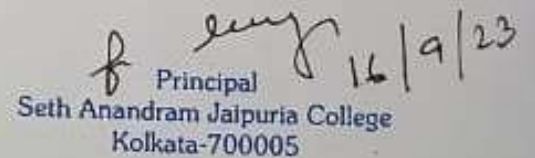 16/9/23
Principal
Seth Anandram Jaipuria College
Kolkata-700005